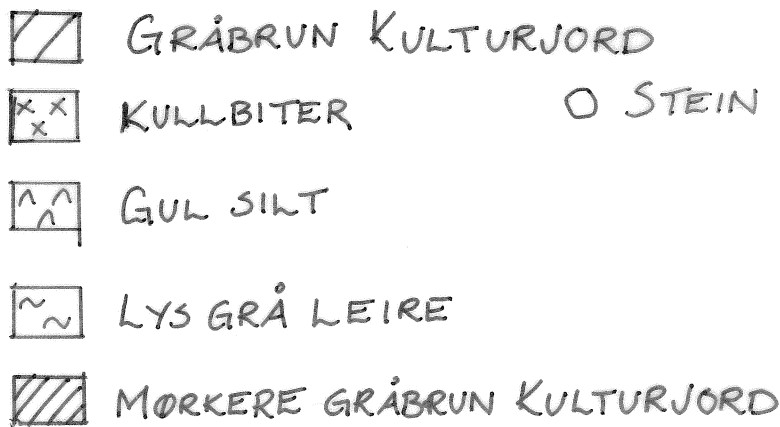 GRÅBRUN KULTURJORD
KULLBITER
STEIN
GUL SILT
LYS GRÅ LEIRE
MØRKERE GRÅBRUN KULTURJORD